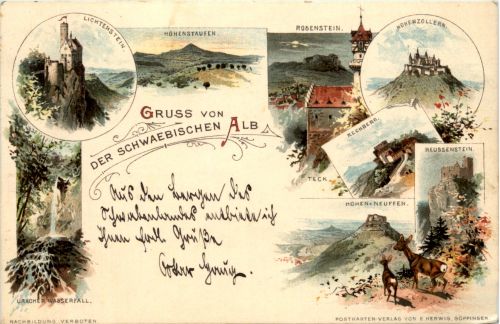 LICHTENSTEIN.
HOHENSTAUFEN.
ROSENSTEIN.
HOHENZOLLERN.
GRUSS VON
DER SCHWAEBISCHEN ALB
RECHBERG.
TECK.
REUSSENSTEIN.
HOHEN-NEUFFEN.
Aus den Bergen des
Schwabenlandes entbiete ich
Ihnen frdl. Grüße
Oskar
URACHER WASSERFALL.
NACHBILDUNG VERBOTEN
POSTKARTEN-VERLAG VON E. HERWIG, GÖPPINGEN